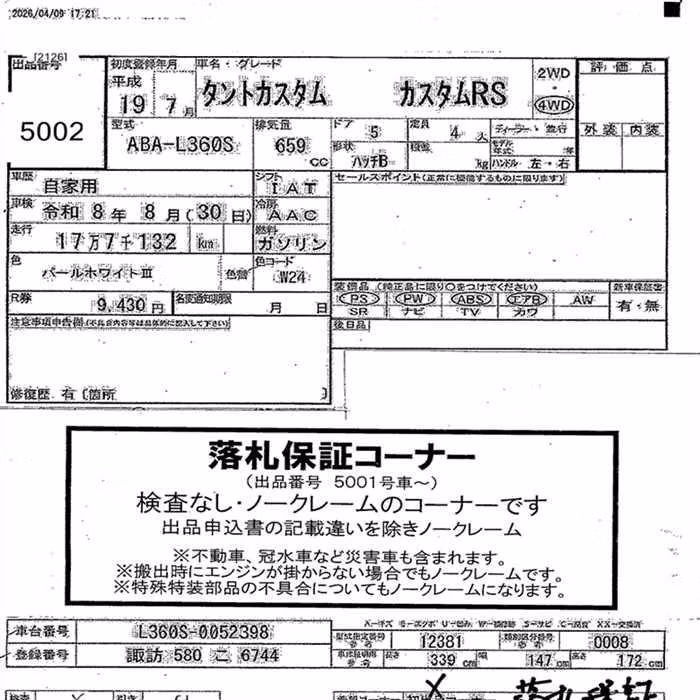 2026/04/09 17:21
[2126]
出品番号
5002
初度登録年月
平成
19 7 月
車名・グレード
タントカスタム カスタムRS
2WD
・
4WD
評価点
外装 内装
型式
ABA-L360S
排気量
659
cc
ドア 5
定員 4 人
形状 ハッチB
kg
ハンドル 左・右
車歴
自家用
シフト
IAT
セールスポイント(正常に稼働するものに限ります)
車検
令和 8 年 8 月(30 日)
冷房
AAC
走行
17万7千132 km
燃料
ガソリン
色
パールホワイトⅢ
色替
色コード
W24
装備品(純正品に限り○をつけてください)
新車保証書
PS PW ABS エアB AW
SR ナビ TV カワ
有・無
後日品
R券
9,430 円
名変通知期限
月 日
注意事項申告欄(不具合内容等は具体的に記入して下さい)
修復歴 有〔箇所 〕
落札保証コーナー
(出品番号 5001号車~)
検査なし・ノークレームのコーナーです
出品申込書の記載違いを除きノークレーム
※不動車、冠水車など災害車も含まれます。
※搬出時にエンジンが掛からない場合でもノークレームです。
※特殊特装部品の不具合についてもノークレームになります。
車台番号
L360S-0052398
型式指定番号
参考
12381
類別区分番号
参考
0008
登録番号
諏訪 580 こ 6744
参考
長さ 339 cm
幅 147 cm
高さ 172 cm